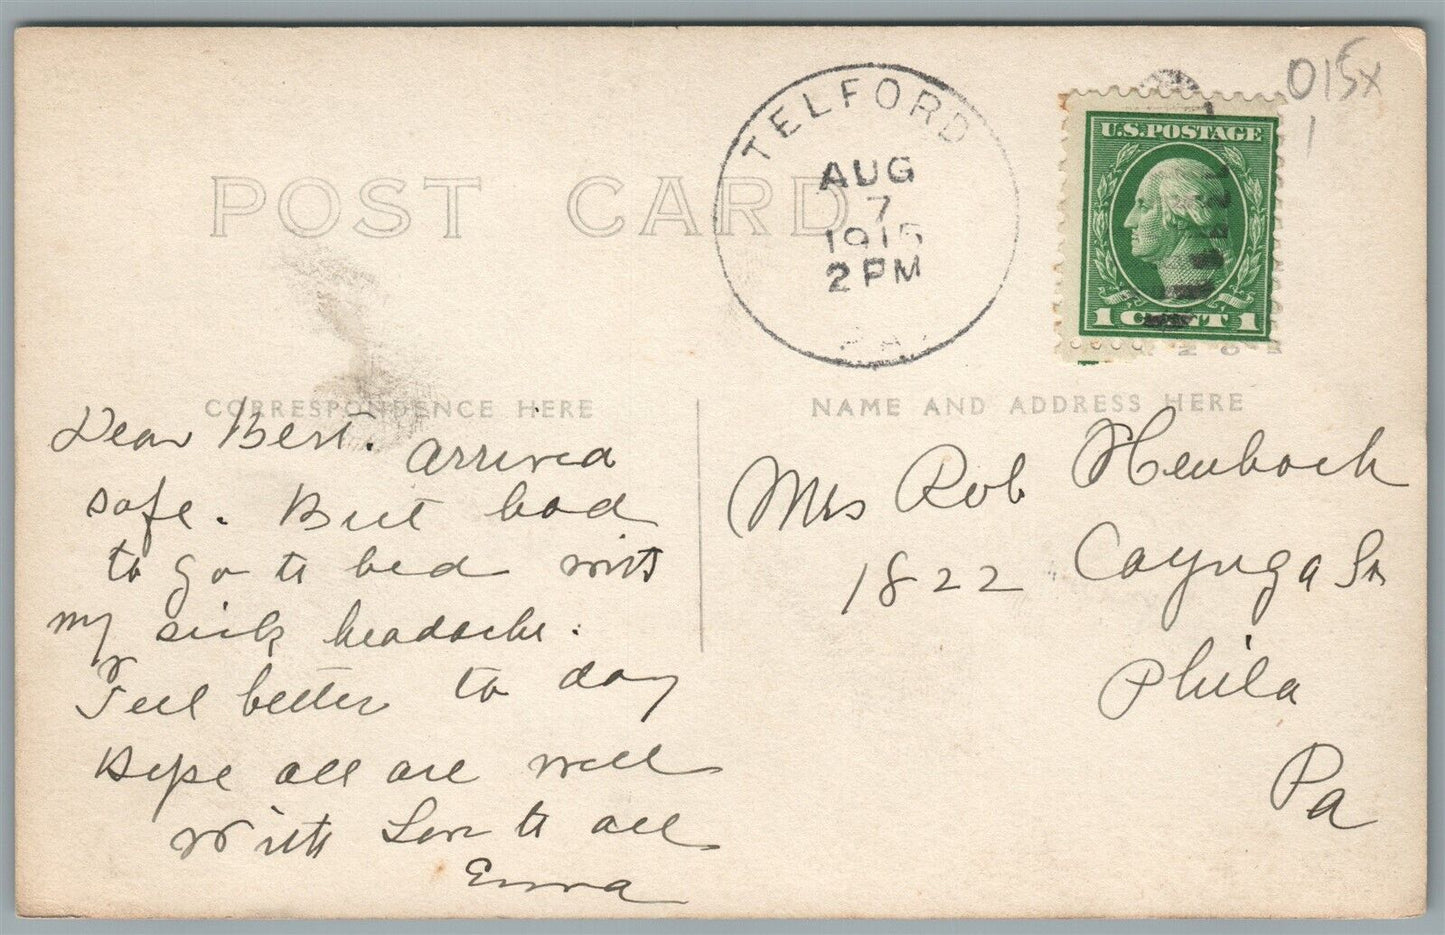 015x
1
TELFORD
AUG
7
1915
2 PM
PA.
U.S. POSTAGE
1 CENT 1
POST CARD
CORRESPONDENCE HERE
NAME AND ADDRESS HERE
Dear Bert. Arrived
safe. But had
to go to bed with
my sick headache.
Feel better to day
Hope all are well
With Love to all
Emma
Mrs Rob
1822 Cayuga St
Phila
Pa